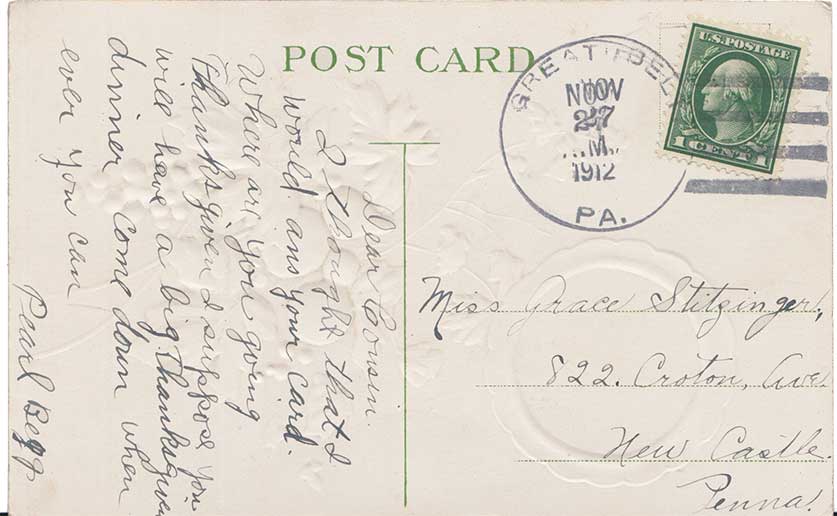 POST CARD
GREAT BELT
NOV
27
.M.
1912
PA.
U.S. POSTAGE
1 CENT 1
Dear Cousin.
I thought that I
would ans your card.
Where are you going
Thanksgiven I suppose you
will have a big thanksgiven
dinner come down when
ever you can
Pearl Begg
Miss Grace Stitzinger,
822. Croton, Ave.
New Castle.
Penna.